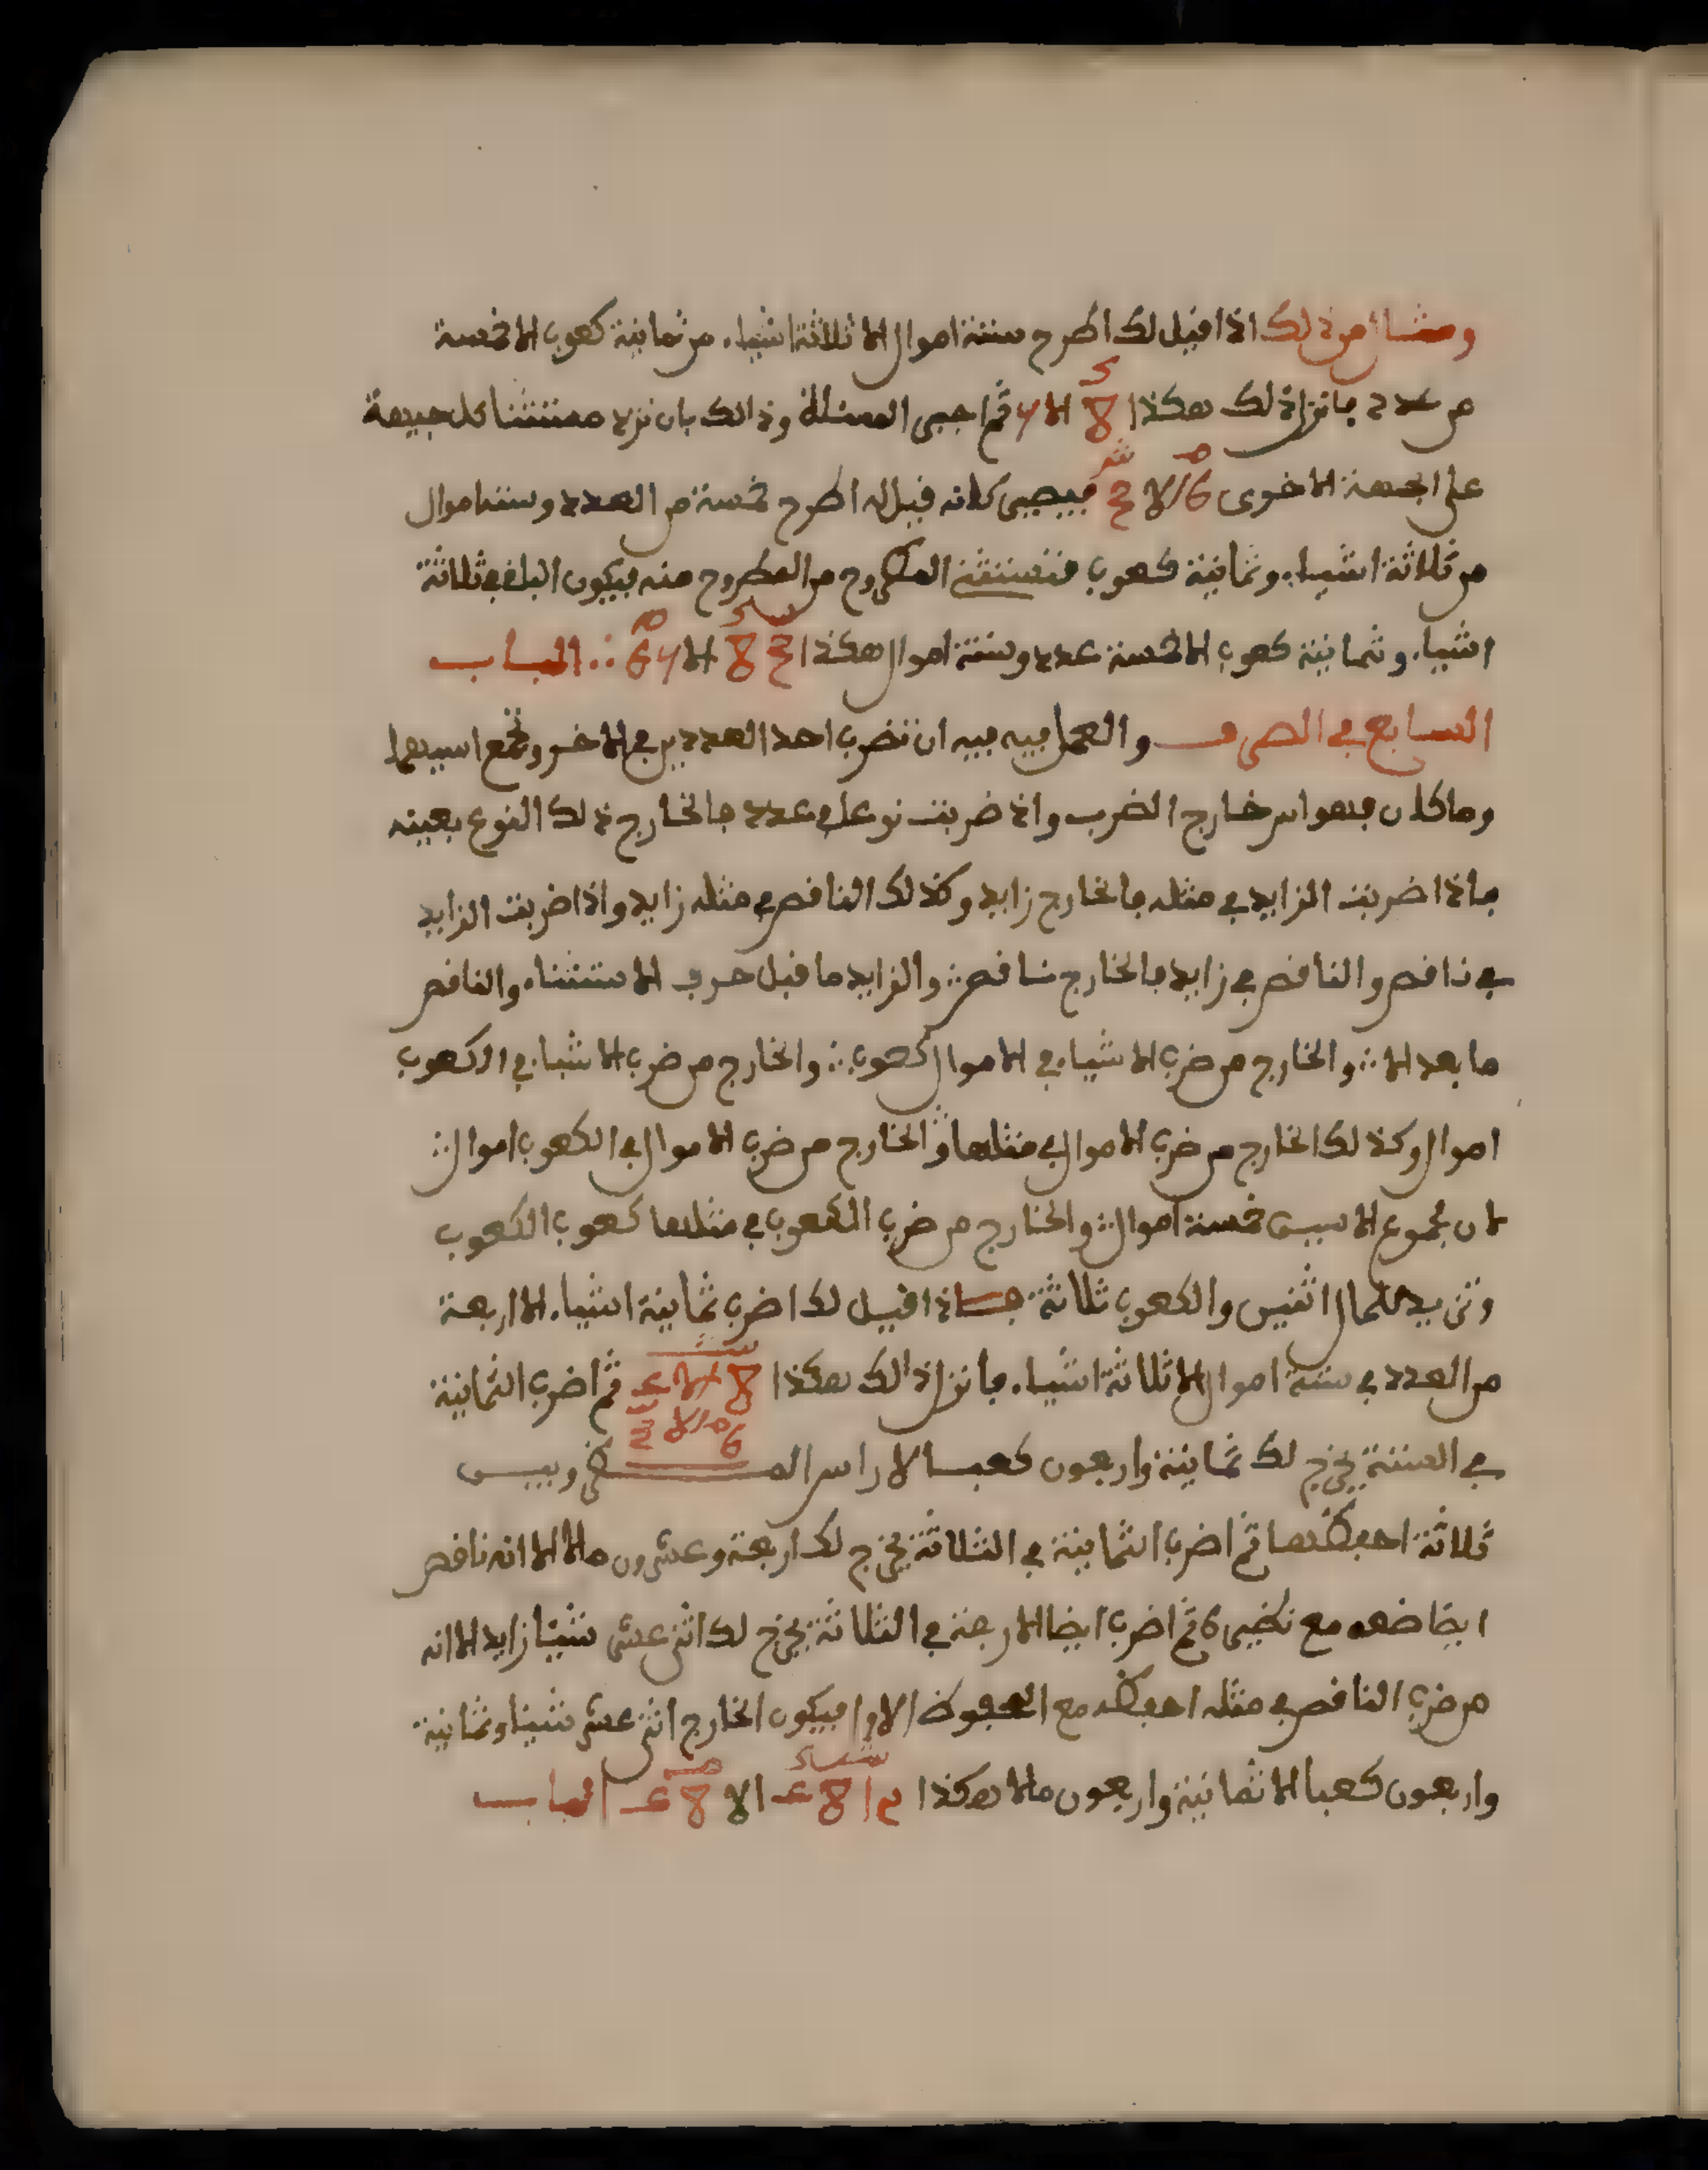 ومثال من ذلك اذا قيل لك اطرح ستة اموال الا ثلاثة اشياء من ثمانية كعوب الا خمسة
من عدد فانزل ذلك هكذا ثم اجبر المسئلة وذالك بان تزيد مستثنا كل جيهة
على الجهة الاخرى فيصير كانه قيل له اطرح خمسة من العدد وستة اموال
من ثلاثة اشياء وثمانية كعوب فتستثنـ المطروح من المطروح منه فيكون الباقى ثلاثة
اشياء وثمانية كعوب الا خمسة عدد وستة اموال هكذا ∴ الباب
السابع فى الضرب والعمل فيه فيه ان تضرب احد العددين فى الاخر وتجمع اسيهما
وما كان فهو اس خارج الضرب واذ ضربت نوعا فى عدد فالخارج ذلك النوع بعينه
فاذا ضربت الزايد فى مثله فالخارج زايد وكذلك الناقص فى مثله زايد واذا ضربت الزايد
فى ناقص والناقص فى زايد فالخارج ناقص ∴ والزايد ما قبل حرف الاستثناء والناقص
ما بعد الا ∴ والخارج من ضرب الاشياء فى الاموال كعوب ∴ والخارج من ضرب الاشيا فى الكعوب
اموال وكذلك الخارج من ضرب الاموال فى مثلها والخارج من ضرب الاموال فى الكعوب اموال ∴
لان مجموع الاسين خمسة اموال ∴ والخارج من ضرب الكعوب فى مثلها كعوب الكعوب
للمال اثنين والكعوب ثلاثة فاذا قيل لك اضرب ثمانية اشياء الا اربعة
من العدد فى ستة اموال الا ثلاثة اشياء فانزل ذالك هكذا ثم اضرب الثمانية
فى الستة يخرج لك ثمانية واربعون كعبا لا راس
ثلاثة احفظها ثم اضرب الثمانية فى الثلاثة يخرج لك اربعة وعشرون مالا الا انه ناقص
ايضا ضعه مع نظيره ثم اضرب ايضا الاربعة فى الثلاثة يخرج لك اثنى عشر شيئا زايد الا انه
من ضرب الناقص فى مثله احفظه مع المحفوظ الاول فيكون الخارج اثنى عشر شيئا وثمانية
واربعون كعبا الا ثمانية واربعون مالا هكذا الباب